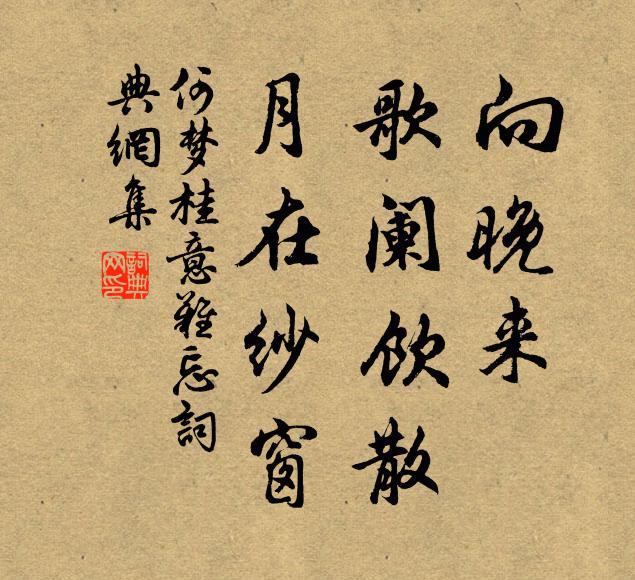 向晚来
歌阑饮散
月在纱窗
何梦桂意難忘詞
典網集
詞典网印